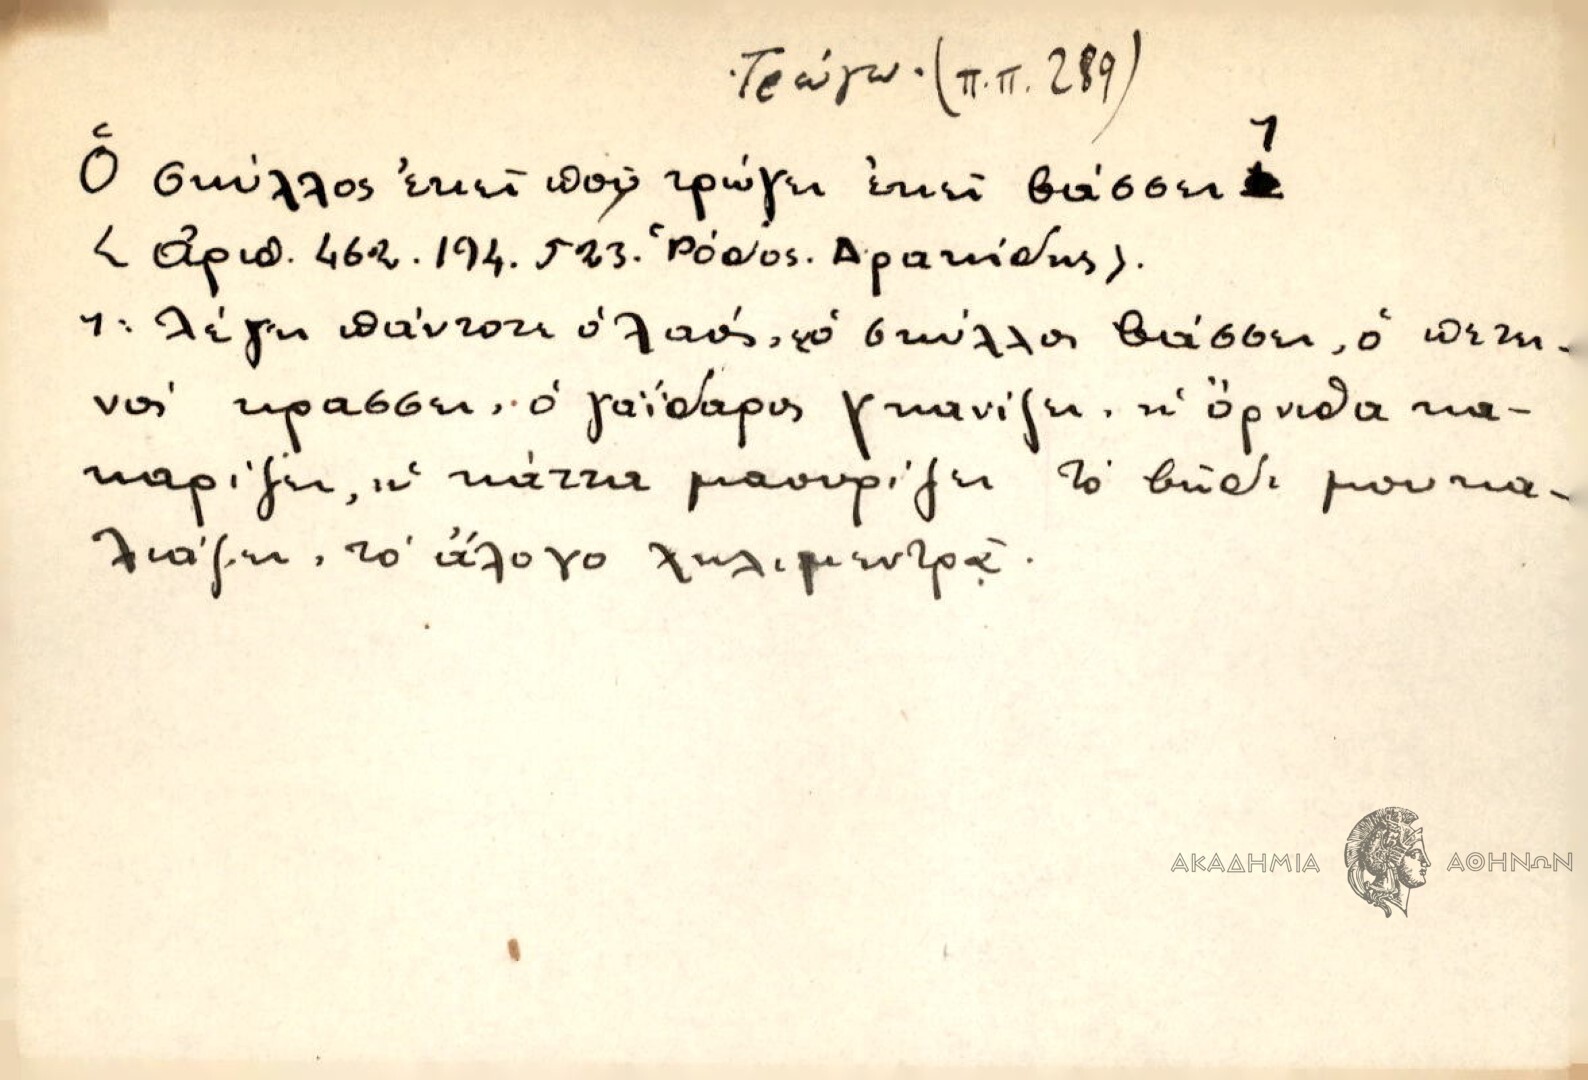 Τρώγω. (π.π. 289)
Ὁ σκύλλος ἐκεῖ ποῦ τρώγει ἐκεῖ βάσσει 1
< Ἀριθ. 462. 194. 523. Ῥόδος. Δρακίδης).
1: Λέγει πάντοτε ὁ λαός, ὁ σκύλλος βάσσει, ὁ πετει-
νός κρασσει, ὁ γαΐδαρος γκανίζει, κ' ὄρνιθα κα-
καρίζει, κ' κάττα μαουρίζει τὸ βῆδι μουκα-
λιάζει, τὸ ἄλογο χιλιμεντρᾶ.
ΑΚΑΔΗΜΙΑ ΑΘΗΝΩΝ